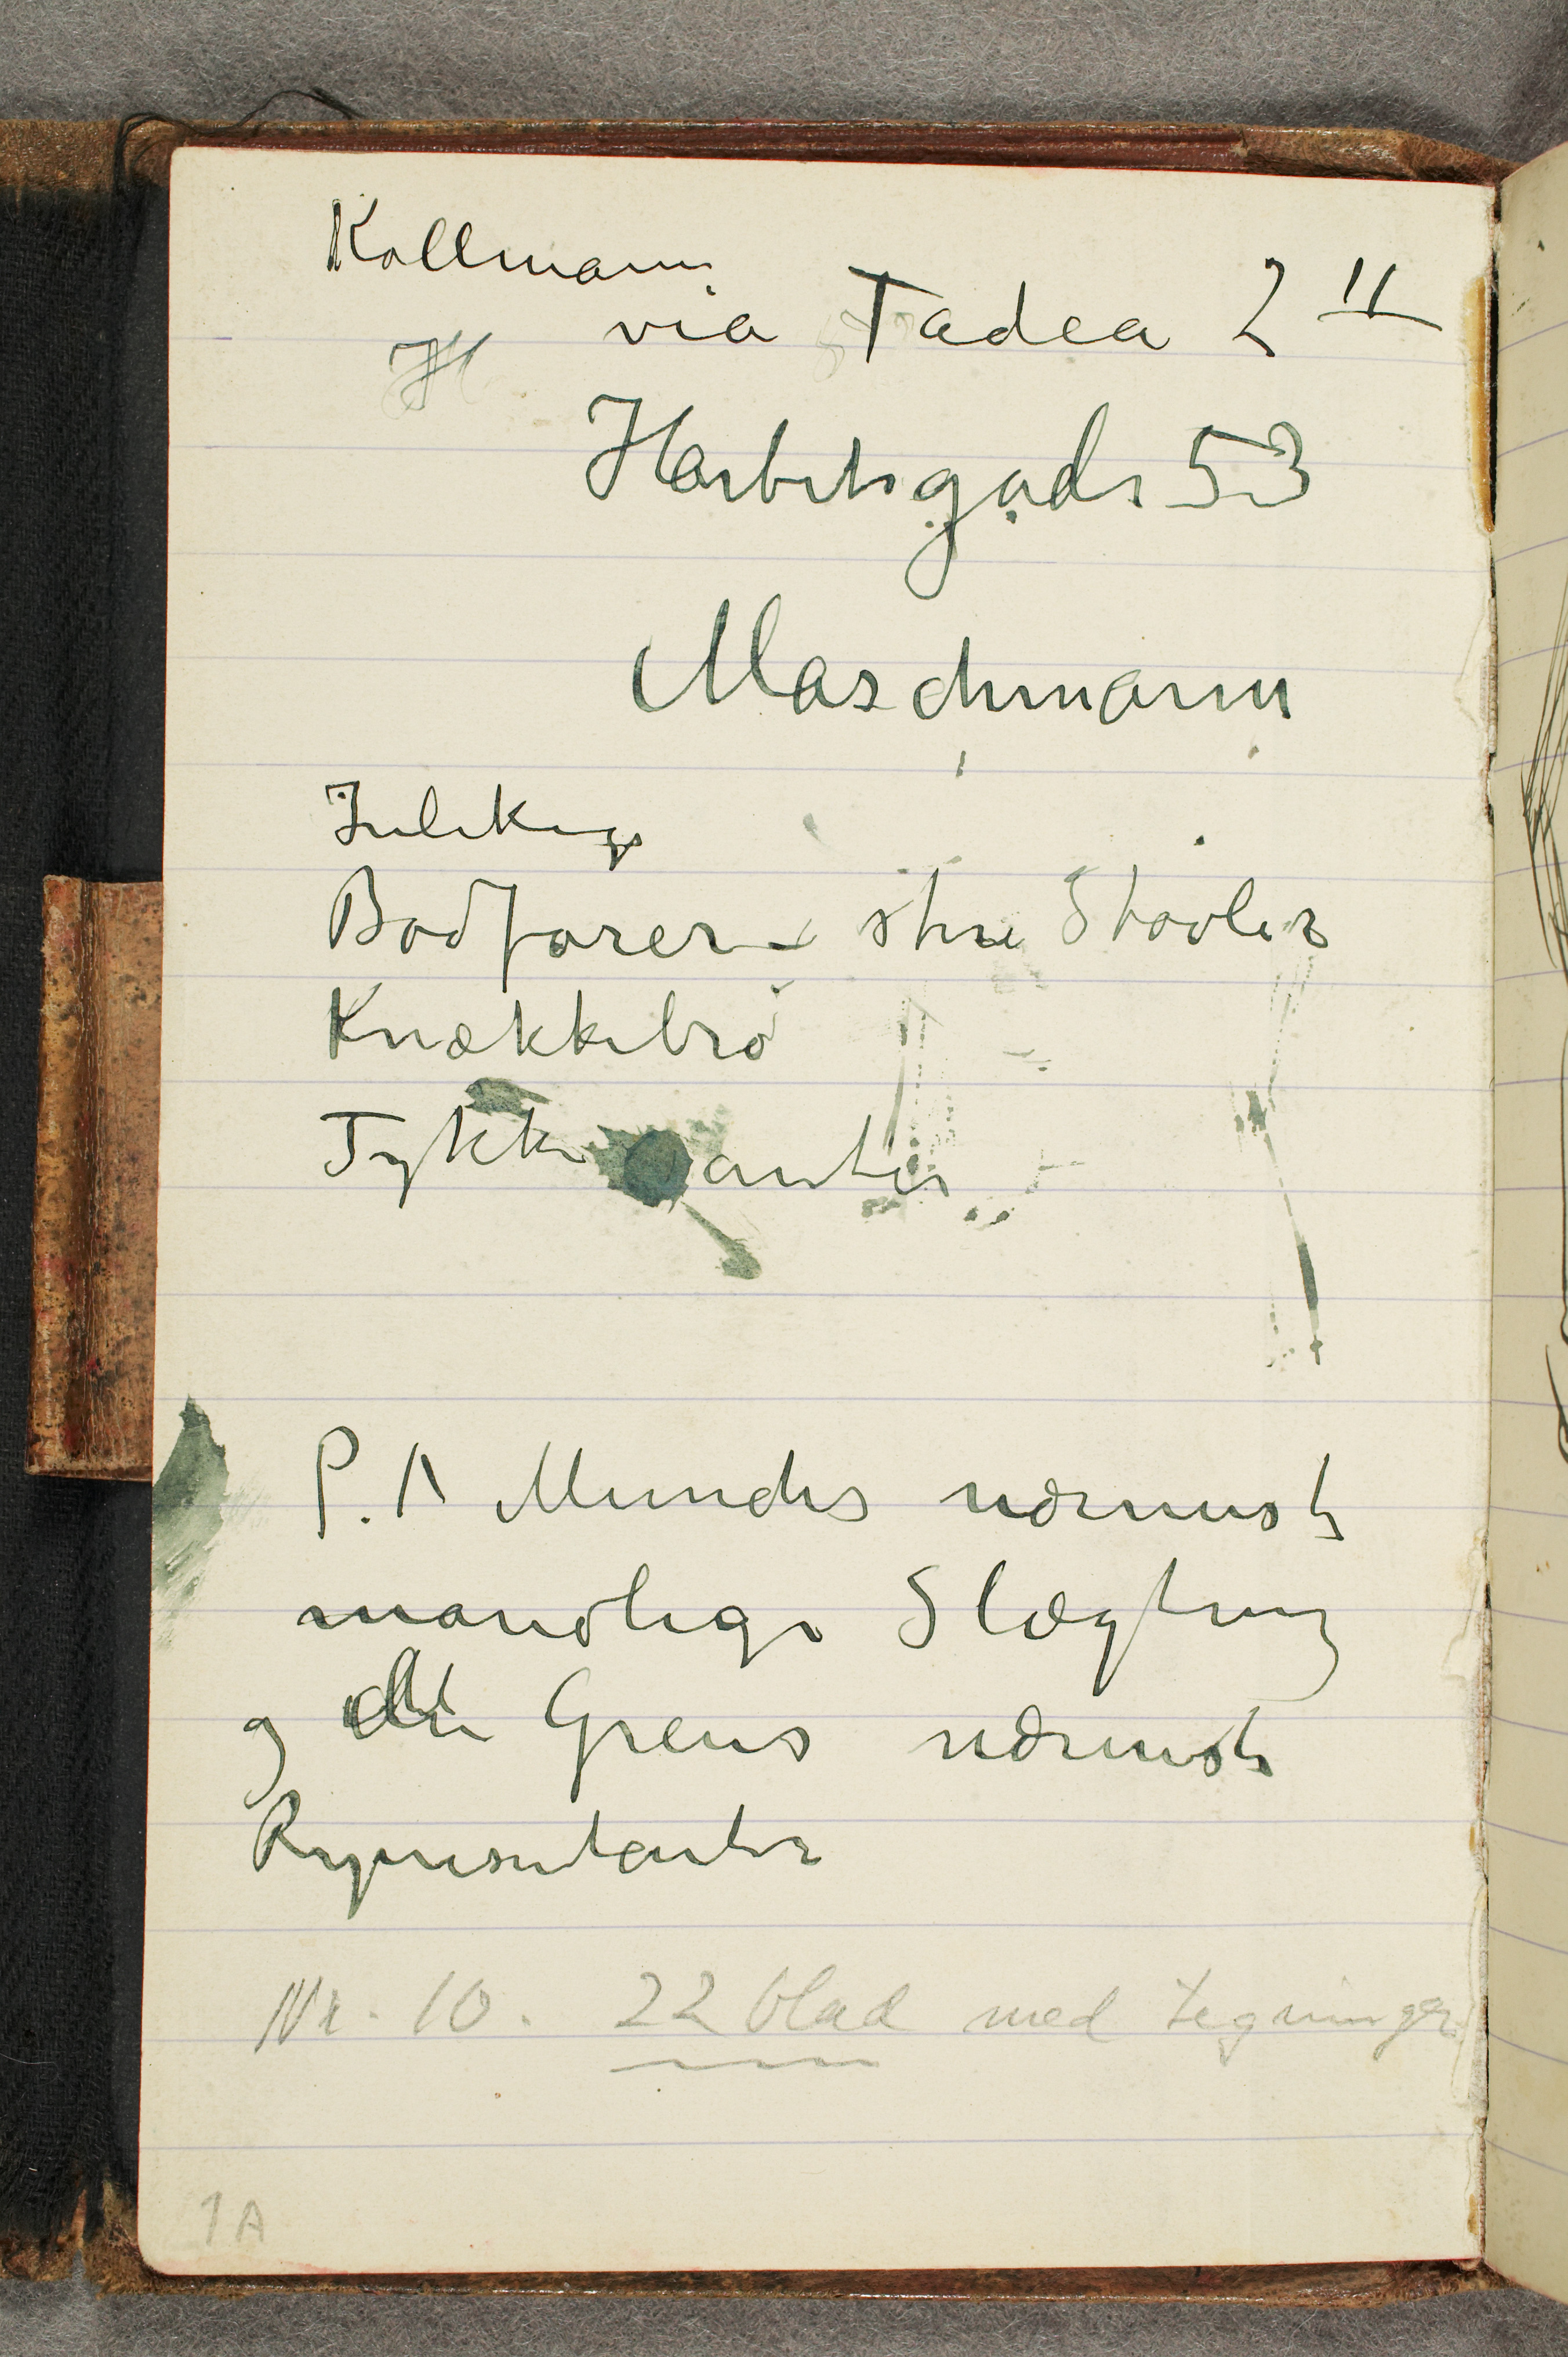 Kollmann
via Tadea 2 II
H
Harbitsgade 53
Maschmann
Julekage
Bodforer – store Støvler
Knækkebrø
Tykke Vanter
P. A Munchs nærmeste
mandlige Slægtning
og den Grens nærmeste
Repræsentanter
Nr. 10. 22 blad med tegninger
1A